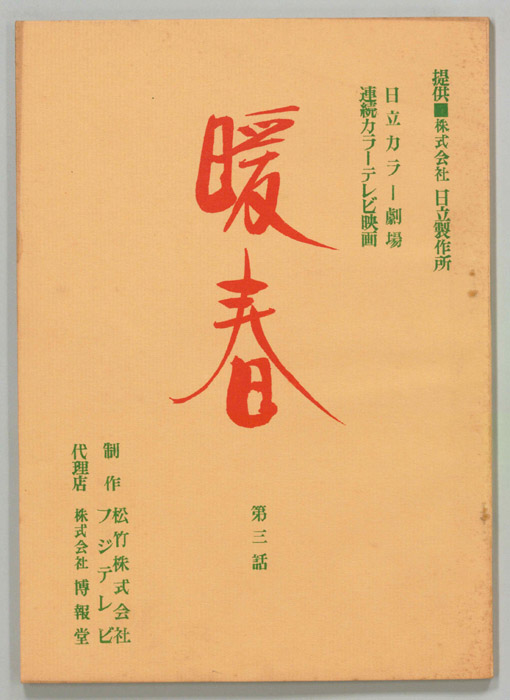 提供 株式会社 日立製作所
日立カラー劇場
連続カラーテレビ映画
暖春
第三話
制作 松竹株式会社
フジテレビ
代理店 株式会社 博報堂